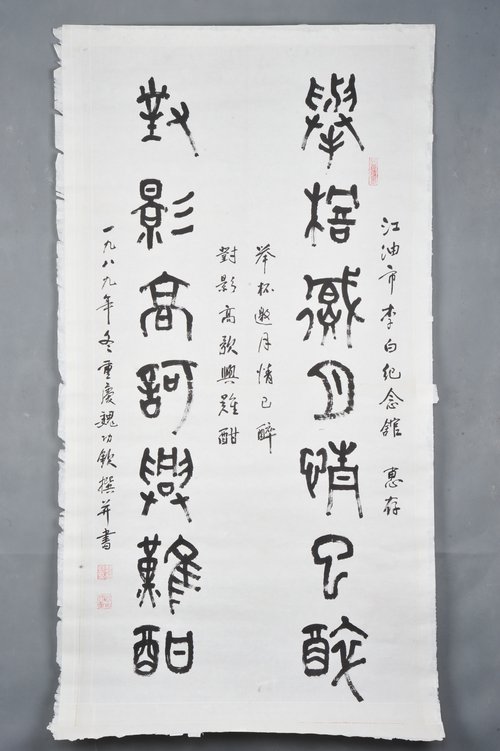 江油市李白紀念館 惠存
舉桮邀月情已醉
举杯邀月情已醉
對影高歌興難酣
對影高歌興難酣
一九八九年冬重慶魏功欽撰并書